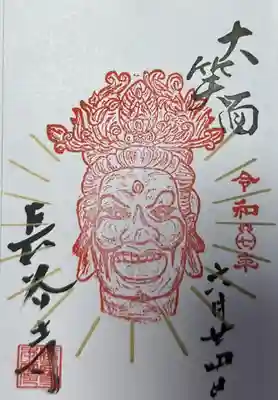 大笑面
令和七年
六月廿四日
長谷寺